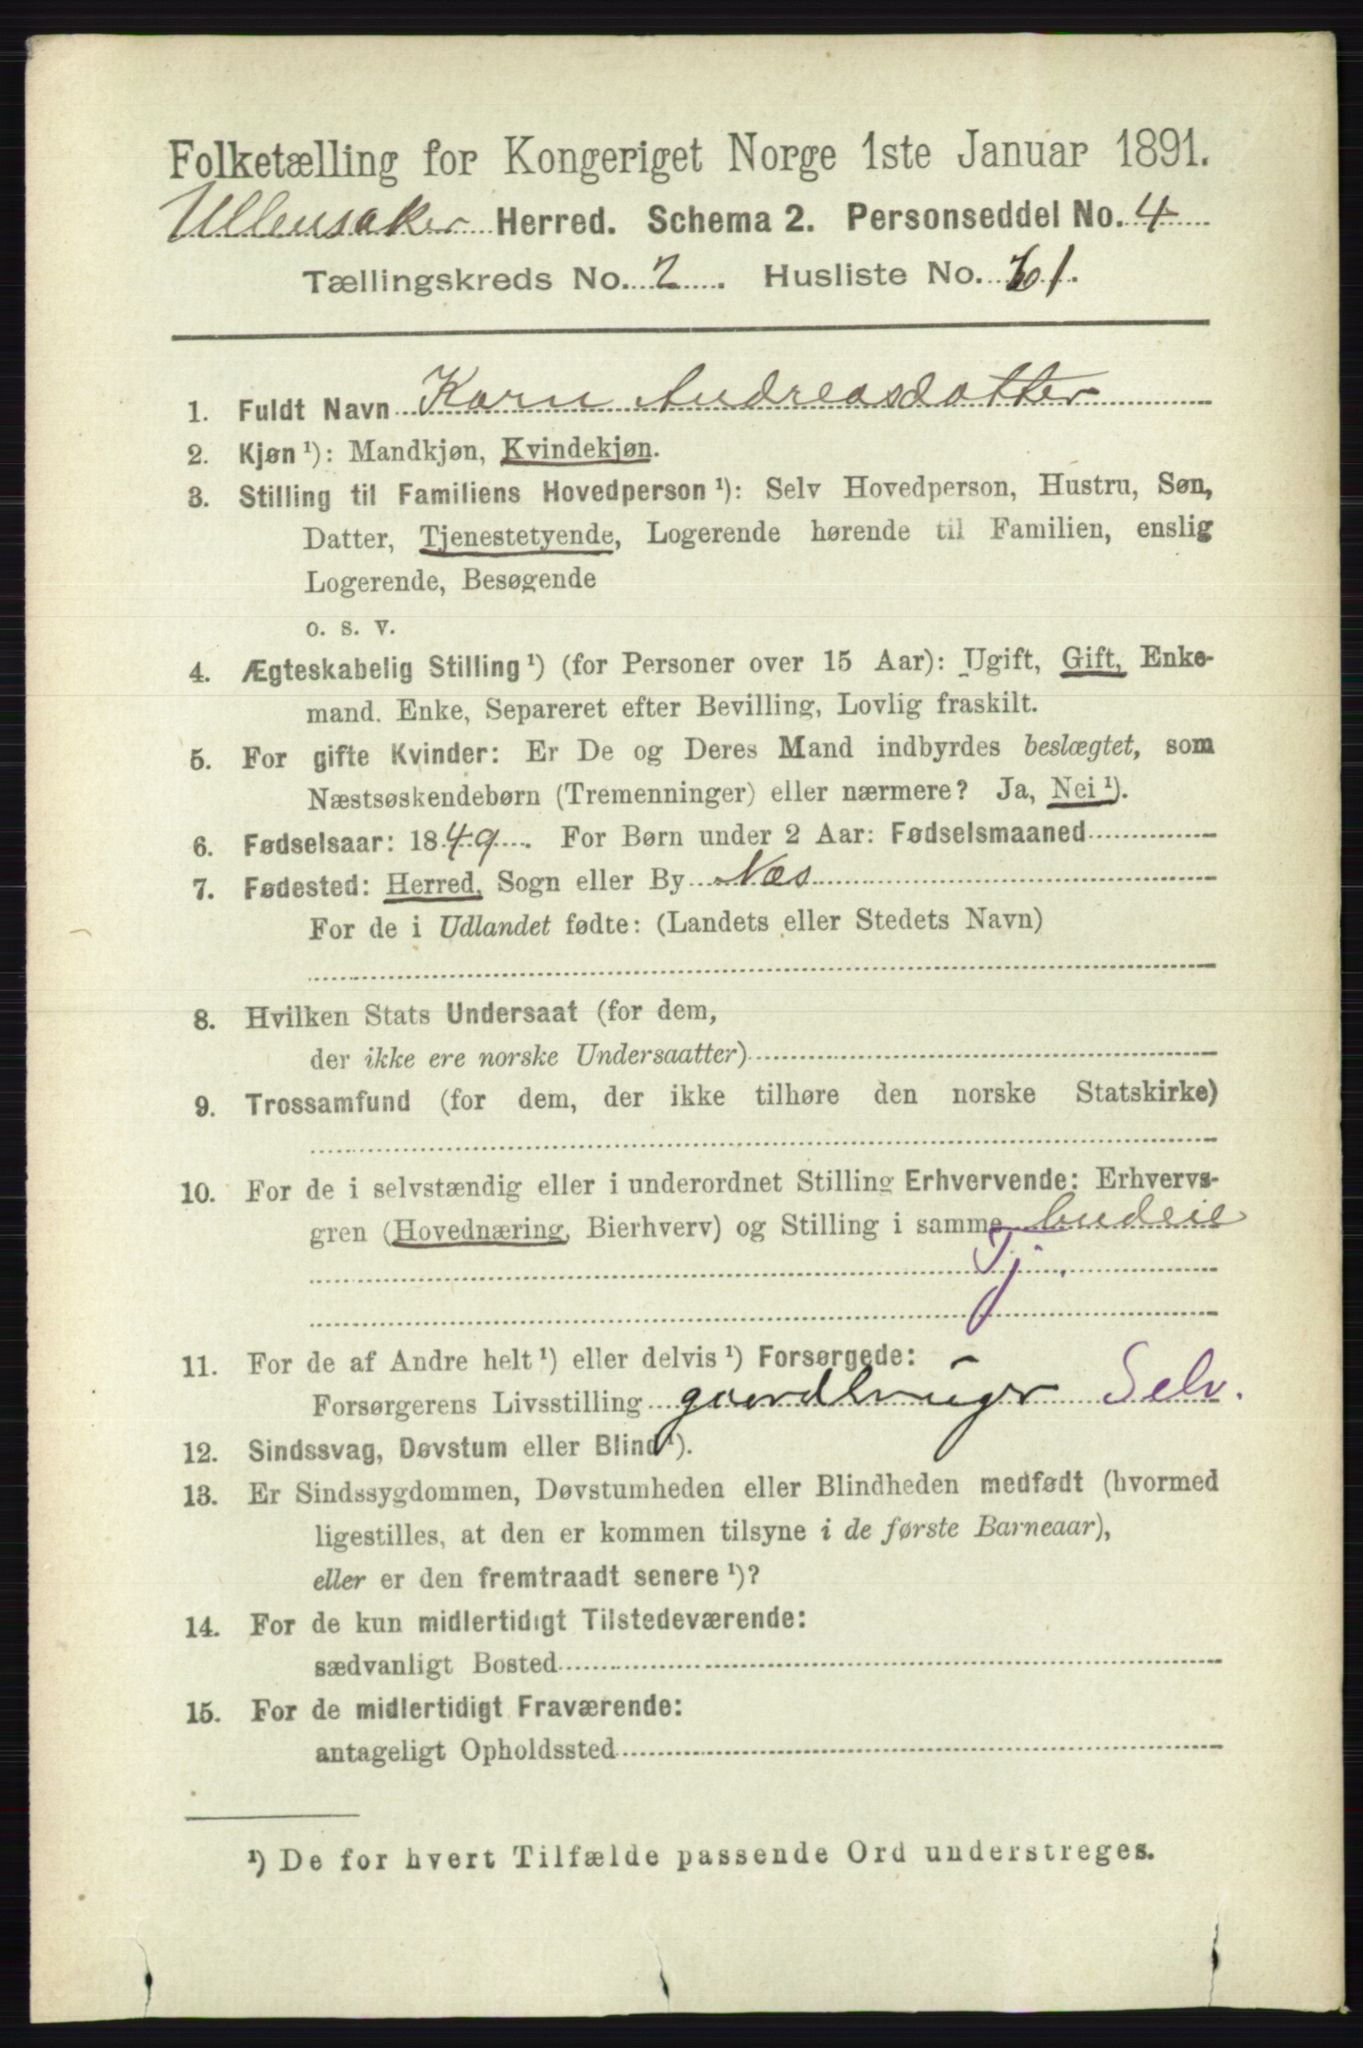 Folketælling for Kongeriget Norge 1ste Januar 1891.
Ullensaker Herred. Schema 2. Personseddel No. 4
Tællingskreds No. 2. Husliste No. 61.
1. Fuldt Navn Karn Andreasdatter
2. Kjøn ¹): Mandkjøn, Kvindekjøn.
3. Stilling til Familiens Hovedperson ¹): Selv Hovedperson, Hustru, Søn,
Datter, Tjenestetyende, Logerende hørende til Familien, enslig
Logerende, Besøgende
o. s. v.
4. Ægteskabelig Stilling ¹) (for Personer over 15 Aar): Ugift, Gift, Enke-
mand. Enke, Separeret efter Bevilling, Lovlig fraskilt.
5. For gifte Kvinder: Er De og Deres Mand indbyrdes beslægtet, som
Næstsøskendebørn (Tremenninger) eller nærmere? Ja, Nei ¹).
6. Fødselsaar: 1849. For Børn under 2 Aar: Fødselsmaaned
7. Fødested: Herred, Sogn eller By Næs
For de i Udlandet fødte: (Landets eller Stedets Navn)
8. Hvilken Stats Undersaat (for dem,
der ikke ere norske Undersaatter)
9. Trossamfund (for dem, der ikke tilhøre den norske Statskirke)
10. For de i selvstændig eller i underordnet Stilling Erhvervende: Erhvervs-
gren (Hovednæring, Bierhverv) og Stilling i samme budeie
Tj.
11. For de af Andre helt ¹) eller delvis ¹) Forsørgede:
Forsørgerens Livsstilling gaardbruger Selv.
12. Sindssvag, Døvstum eller Blind ¹).
13. Er Sindssygdommen, Døvstumheden eller Blindheden medfødt (hvormed
ligestilles, at den er kommen tilsyne i de første Barneaar),
eller er den fremtraadt senere ¹)?
14. For de kun midlertidigt Tilstedeværende:
sædvanligt Bosted
15. For de midlertidigt Fraværende:
antageligt Opholdssted
¹) De for hvert Tilfælde passende Ord understreges.